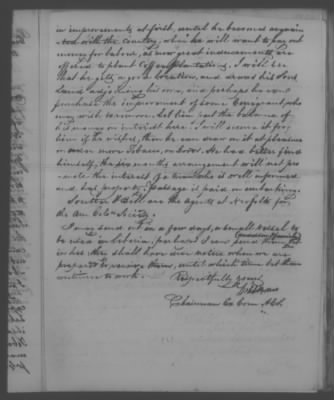 in improvements at first, until he becomes acquain
ted with the country, when he will want to pay out
money for labour, as now great inducements are
offered to plant Coffee plantations. I will see
that he gets a good location, and draws his Land
adjoining his own, and perhaps he can
purchase the improvement of some Emigrant who
may wish to remove. Let him put the balance of
his money on interest here. I will secure it for
him if he wishes, then he can draw on it at pleasure
in order more Tobacco, or Goods. He had better find
himself, the six months arrangement will not pro
mote the interest of a man who is well informed
and has property. Passage is paid on embarking.
Soutter & Bell are the agents at Norfolk for
the Am Colo. Society.
I may send out in a few days, a small vessel to
be used in Liberia, perhaps I can send them
in her. You shall have due notice when we are
prepared to receive them, until which time let them
continue to work.
Respectfully yours
Chairman Ex Com ACS